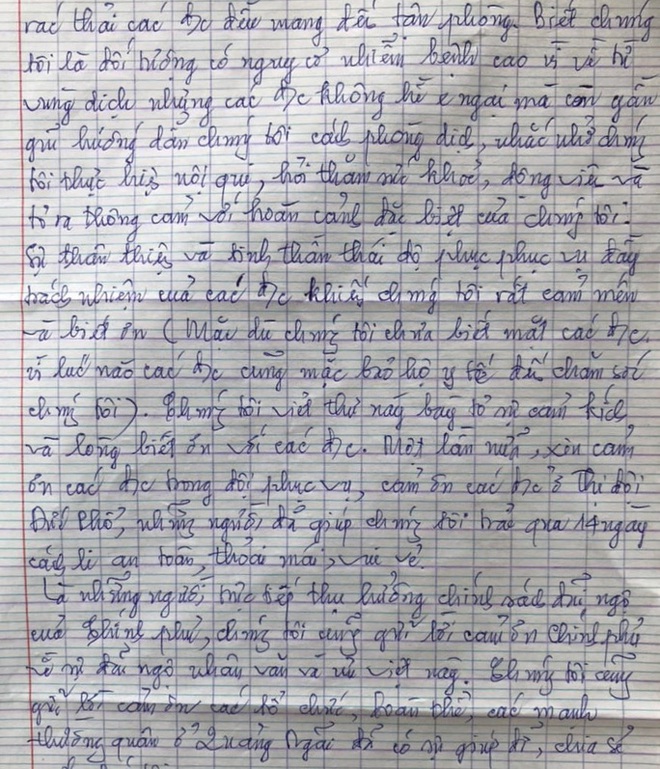 rác thải các đ/c đều mang đến tận phòng. Biết chúng
tôi là đối tượng có nguy cơ nhiễm bệnh cao vì về từ
vùng dịch nhưng các đ/c không hề e ngại mà còn gần
gũi hướng dẫn chúng tôi cách phòng dịch, nhắc nhở chúng
tôi thực hiện nội qui, hỏi thăm sức khoẻ, động viên và
tỏ ra thông cảm với hoàn cảnh đặc biệt của chúng tôi.
Sự thân thiện và tinh thần thái độ phục phục vụ đầy
trách nhiệm của các đ/c khiến chúng tôi rất cảm mến
và biết ơn (Mặc dù chúng tôi chưa biết mặt các đ/c.
vì lúc nào các đ/c cũng mặc bảo hộ y tế để chăm sóc
chúng tôi). Chúng tôi viết thư này bày tỏ sự cảm kích
và lòng biết ơn với các đ/c. Một lần nữa, xin cảm
ơn các đ/c trong đội phục vụ, cảm ơn các đ/c ở Thị đội
Đức Phổ, những người đã giúp chúng tôi trải qua 14 ngày
cách li an toàn, thoải mái, vui vẻ.
Là những người trực tiếp thụ hưởng chính sách đãi ngộ
của Chính phủ, chúng tôi cũng gửi lời cảm ơn Chính phủ
về sự đãi ngộ nhân văn và ưu việt này. Chúng tôi cũng
gửi lời cảm ơn các tổ chức, đoàn thể, các mạnh
thường quân ở Quảng Ngãi đã có sự giúp đỡ, chia sẻ